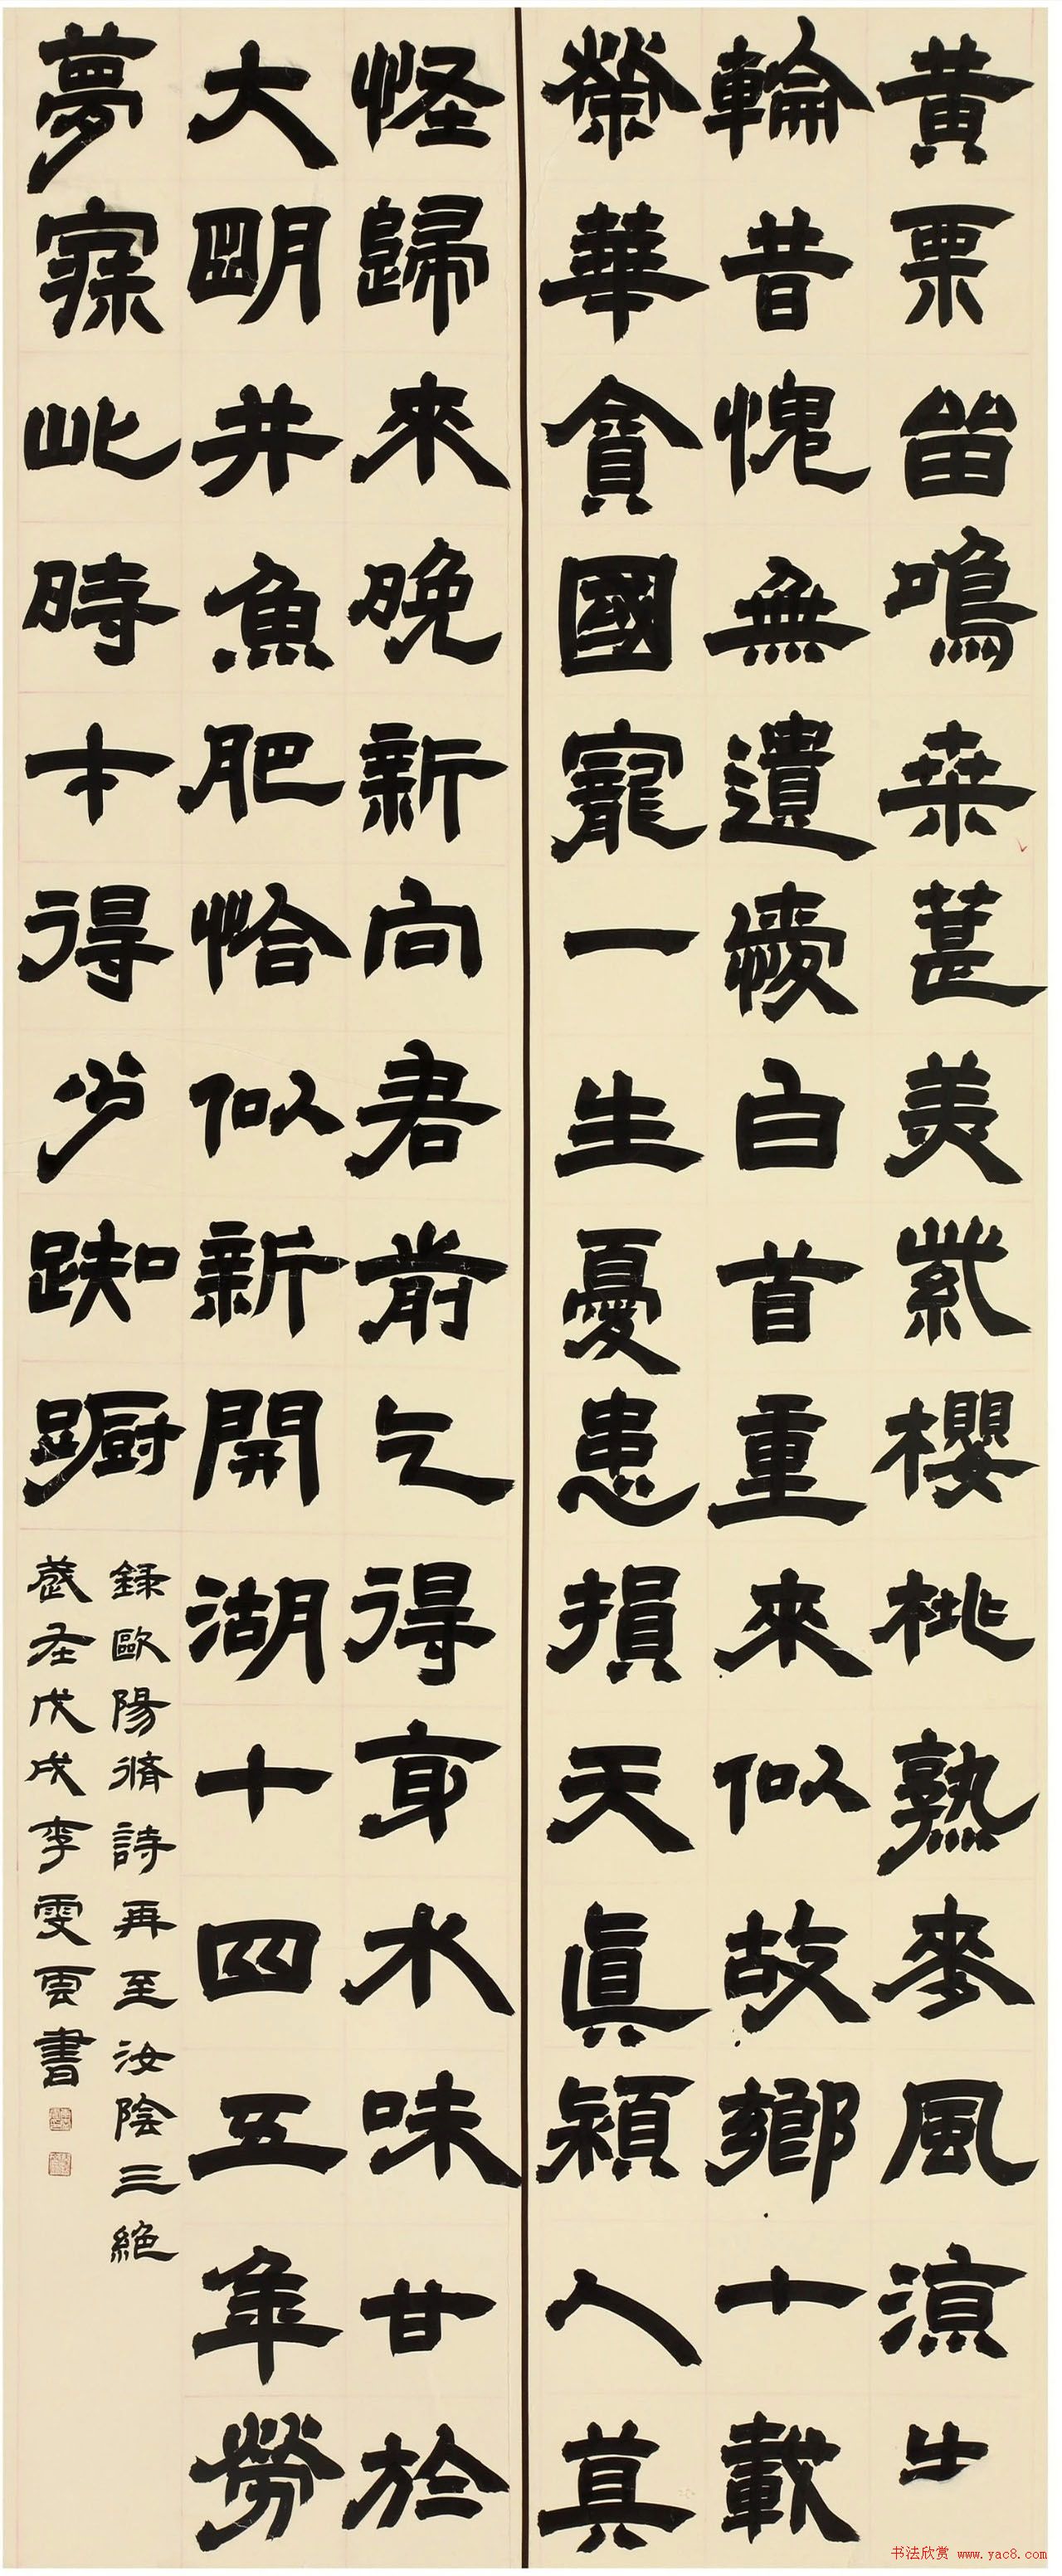 黄栗畱鳴桑葚美紫櫻桃熟麥風涼朱
輪昔愧無遺愛白首重來似故鄉十載
榮華貪國寵一生憂患損天眞潁人莫
怪歸來晚新向君前乞得身水味甘於
大明井魚肥恰似新開湖十四五年勞
夢寐此時才得少踟躕
録歐陽脩詩再至汝陰三絕
歲在戊戌李雯雲書
书法欣赏 www.yac8.com